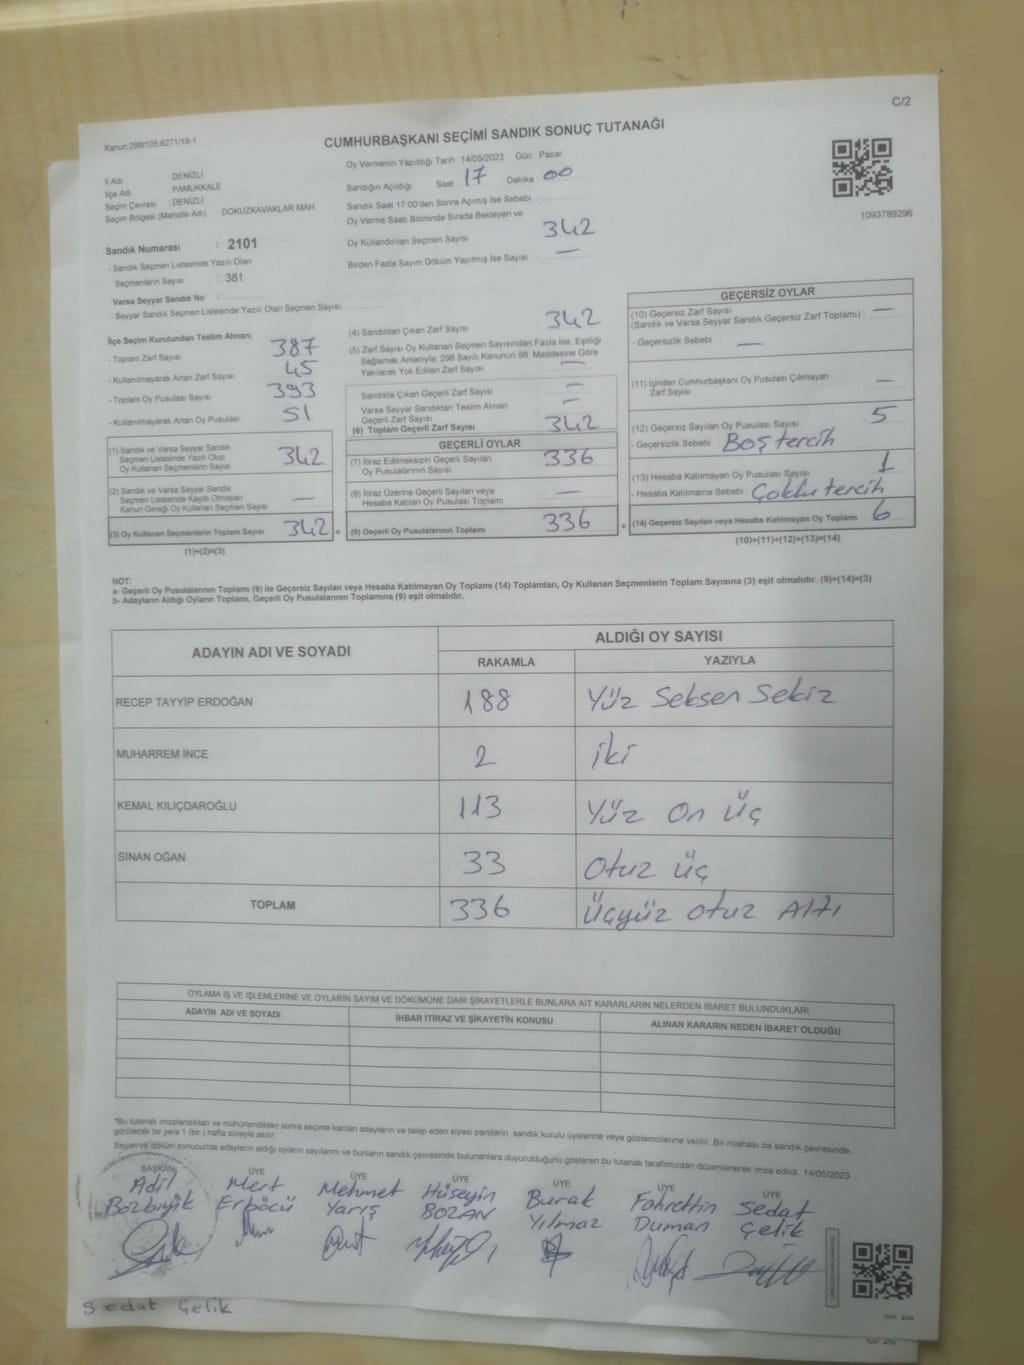 C/2
Kanun:298/105;6271/18-1
CUMHURBAŞKANI SEÇİMİ SANDIK SONUÇ TUTANAĞI
İl Adı : DENİZLİ
İlçe Adı PAMUKKALE
Seçim Çevresi : DENİZLİ
Seçim Bölgesi (Mahalle Adı) DOKUZKAVAKLAR MAH.
Oy Vermenin Yapıldığı Tarih 14/05/2023 Gün Pazar
Sandığın Açıldığı Saat 17 Dakika 00
Sandık Saat 17:00'den Sonra Açımış İse Sebebi
Oy Verme Saati Bitiminde Sırada Bekleyen ve
Oy Kullandırılan Seçmen Sayısı 342
Birden Fazla Sayım Döküm Yapılmış İse Sayısı —
1093789296
Sandık Numarası : 2101
- Sandık Seçmen Listesinde Yazılı Olan
Seçmenlerin Sayısı : 381
Varsa Seyyar Sandık No :
- Seyyar Sandık Seçmen Listesinde Yazılı Olan Seçmen Sayısı:
İlçe Seçim Kurulundan Teslim Alınan;
- Toplam Zarf Sayısı 387
- Kullanılmayarak Artan Zarf Sayısı 45
- Toplam Oy Pusulası Sayısı 393
- Kullanılmayarak Artan Oy Pusulası 51
(1) Sandık ve Varsa Seyyar Sandık
Seçmen Listesinde Yazılı Olup
Oy Kullanan Seçmenlerin Sayısı 342
(2) Sandık ve Varsa Seyyar Sandık
Seçmen Listesinde Kayıtlı Olmayan
Kanun Gereği Oy Kullanan Seçmen Sayısı —
(3) Oy Kullanan Seçmenlerin Toplam Sayısı 342 =
(1)+(2)=(3)
(4) Sandıktan Çıkan Zarf Sayısı 342
(5) Zarf Sayısı Oy Kullanan Seçmen Sayısından Fazla İse, Eşitliği
Sağlamak Amacıyla, 298 Sayılı Kanunun 98. Maddesine Göre
Yakılarak Yok Edilen Zarf Sayısı —
Sandıkta Çıkan Geçerli Zarf Sayısı —
Varsa Seyyar Sandıktan Teslim Alınan
Geçerli Zarf Sayısı —
(6) Toplam Geçerli Zarf Sayısı 342
GEÇERLİ OYLAR
(7) İtiraz Edilmeksizin Geçerli Sayılan
Oy Pusulalarının Sayısı 336
(8) İtiraz Üzerine Geçerli Sayılan veya
Hesaba Katılan Oy Pusulası Toplamı —
(9) Geçerli Oy Pusulalarının Toplamı 336 +
GEÇERSİZ OYLAR
(10) Geçersiz Zarf Sayısı —
(Sandık ve Varsa Seyyar Sandık Geçersiz Zarf Toplamı)
- Geçersizlik Sebebi : —
(11) İçinden Cumhurbaşkanı Oy Pusulası Çıkmayan
Zarf Sayısı —
(12) Geçersiz Sayılan Oy Pusulası Sayısı 5
- Geçersizlik Sebebi : Boş tercih
(13) Hesaba Katılmayan Oy Pusulası Sayısı 1
- Hesaba Katılmama Sebebi : Çoklu tercih
(14) Geçersiz Sayılan veya Hesaba Katılmayan Oy Toplamı 6
(10)+(11)+(12)+(13)=(14)
NOT:
a- Geçerli Oy Pusulalarının Toplamı (9) ile Geçersiz Sayılan veya Hesaba Katılmayan Oy Toplamı (14) Toplamları, Oy Kullanan Seçmenlerin Toplam Sayısına (3) eşit olmalıdır. (9)+(14)=(3)
b- Adayların Aldığı Oyların Toplamı, Geçerli Oy Pusulalarının Toplamına (9) eşit olmalıdır.
ADAYIN ADI VE SOYADI ALDIĞI OY SAYISI
RAKAMLA YAZIYLA
RECEP TAYYİP ERDOĞAN 188 Yüz Seksen Sekiz
MUHARREM İNCE 2 iki
KEMAL KILIÇDAROĞLU 113 Yüz On Üç
SİNAN OĞAN 33 Otuz üç
TOPLAM 336 Üçyüz Otuz Altı
OYLAMA İŞ VE İŞLEMLERİNE VE OYLARIN SAYIM VE DÖKÜMÜNE DAİR ŞİKAYETLERLE BUNLARA AİT KARARLARIN NELERDEN İBARET BULUNDUKLARI
ADAYIN ADI VE SOYADI İHBAR İTİRAZ VE ŞİKAYETİN KONUSU ALINAN KARARIN NEDEN İBARET OLDUĞU
*Bu tutanak imzalandıktan ve mühürlendikten sonra seçime katılan adayların ve talep eden siyasi partilerin sandık kurulu üyelerine veya gözlemcilerine verilir. Bir nüshası da sandık çevresinde
görülecek bir yere 1 (bir) hafta süreyle asılır.
Sayım ve döküm sonucunda adayların aldığı oyların sayılarını ve bunların sandık çevresinde bulunanlara duyurulduğunu gösteren bu tutanak tarafımızdan düzenlenerek imza edildi. 14/05/2023
BAŞKAN ÜYE ÜYE ÜYE ÜYE ÜYE ÜYE
Adil Mert Mehmet Hüseyin Burak Fahrettin Sedat
Bozbıyık Erböcü Yarış BOZAN Yılmaz Duman Çelik
Sedat Çelik